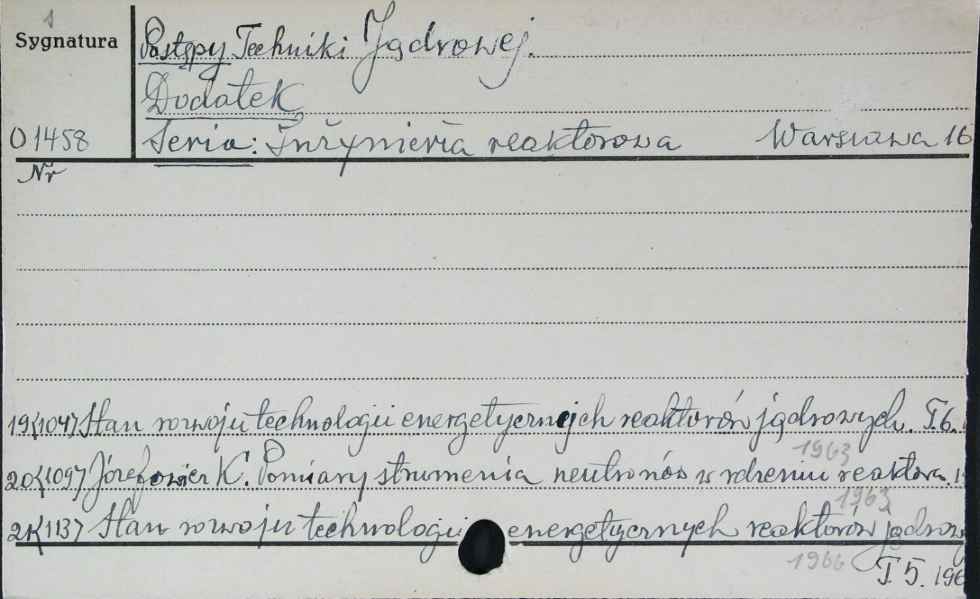 1
Sygnatura Postępy Techniki Jądrowej.
Dodatek
O 1458 Seria: Inżynieria reaktorowa Warszawa 16
Nr
19(1047) Stan rozwoju technologii energetycznych reaktorów jądrowych. T. 6.
1963
20(1097) Józefowicz K. Pomiary strumienia neutronów w rdzeniu reaktora.
1963
21(1137) Stan rozwoju technologii energetycznych reaktorów jądrowy
1966 T. 5. 196